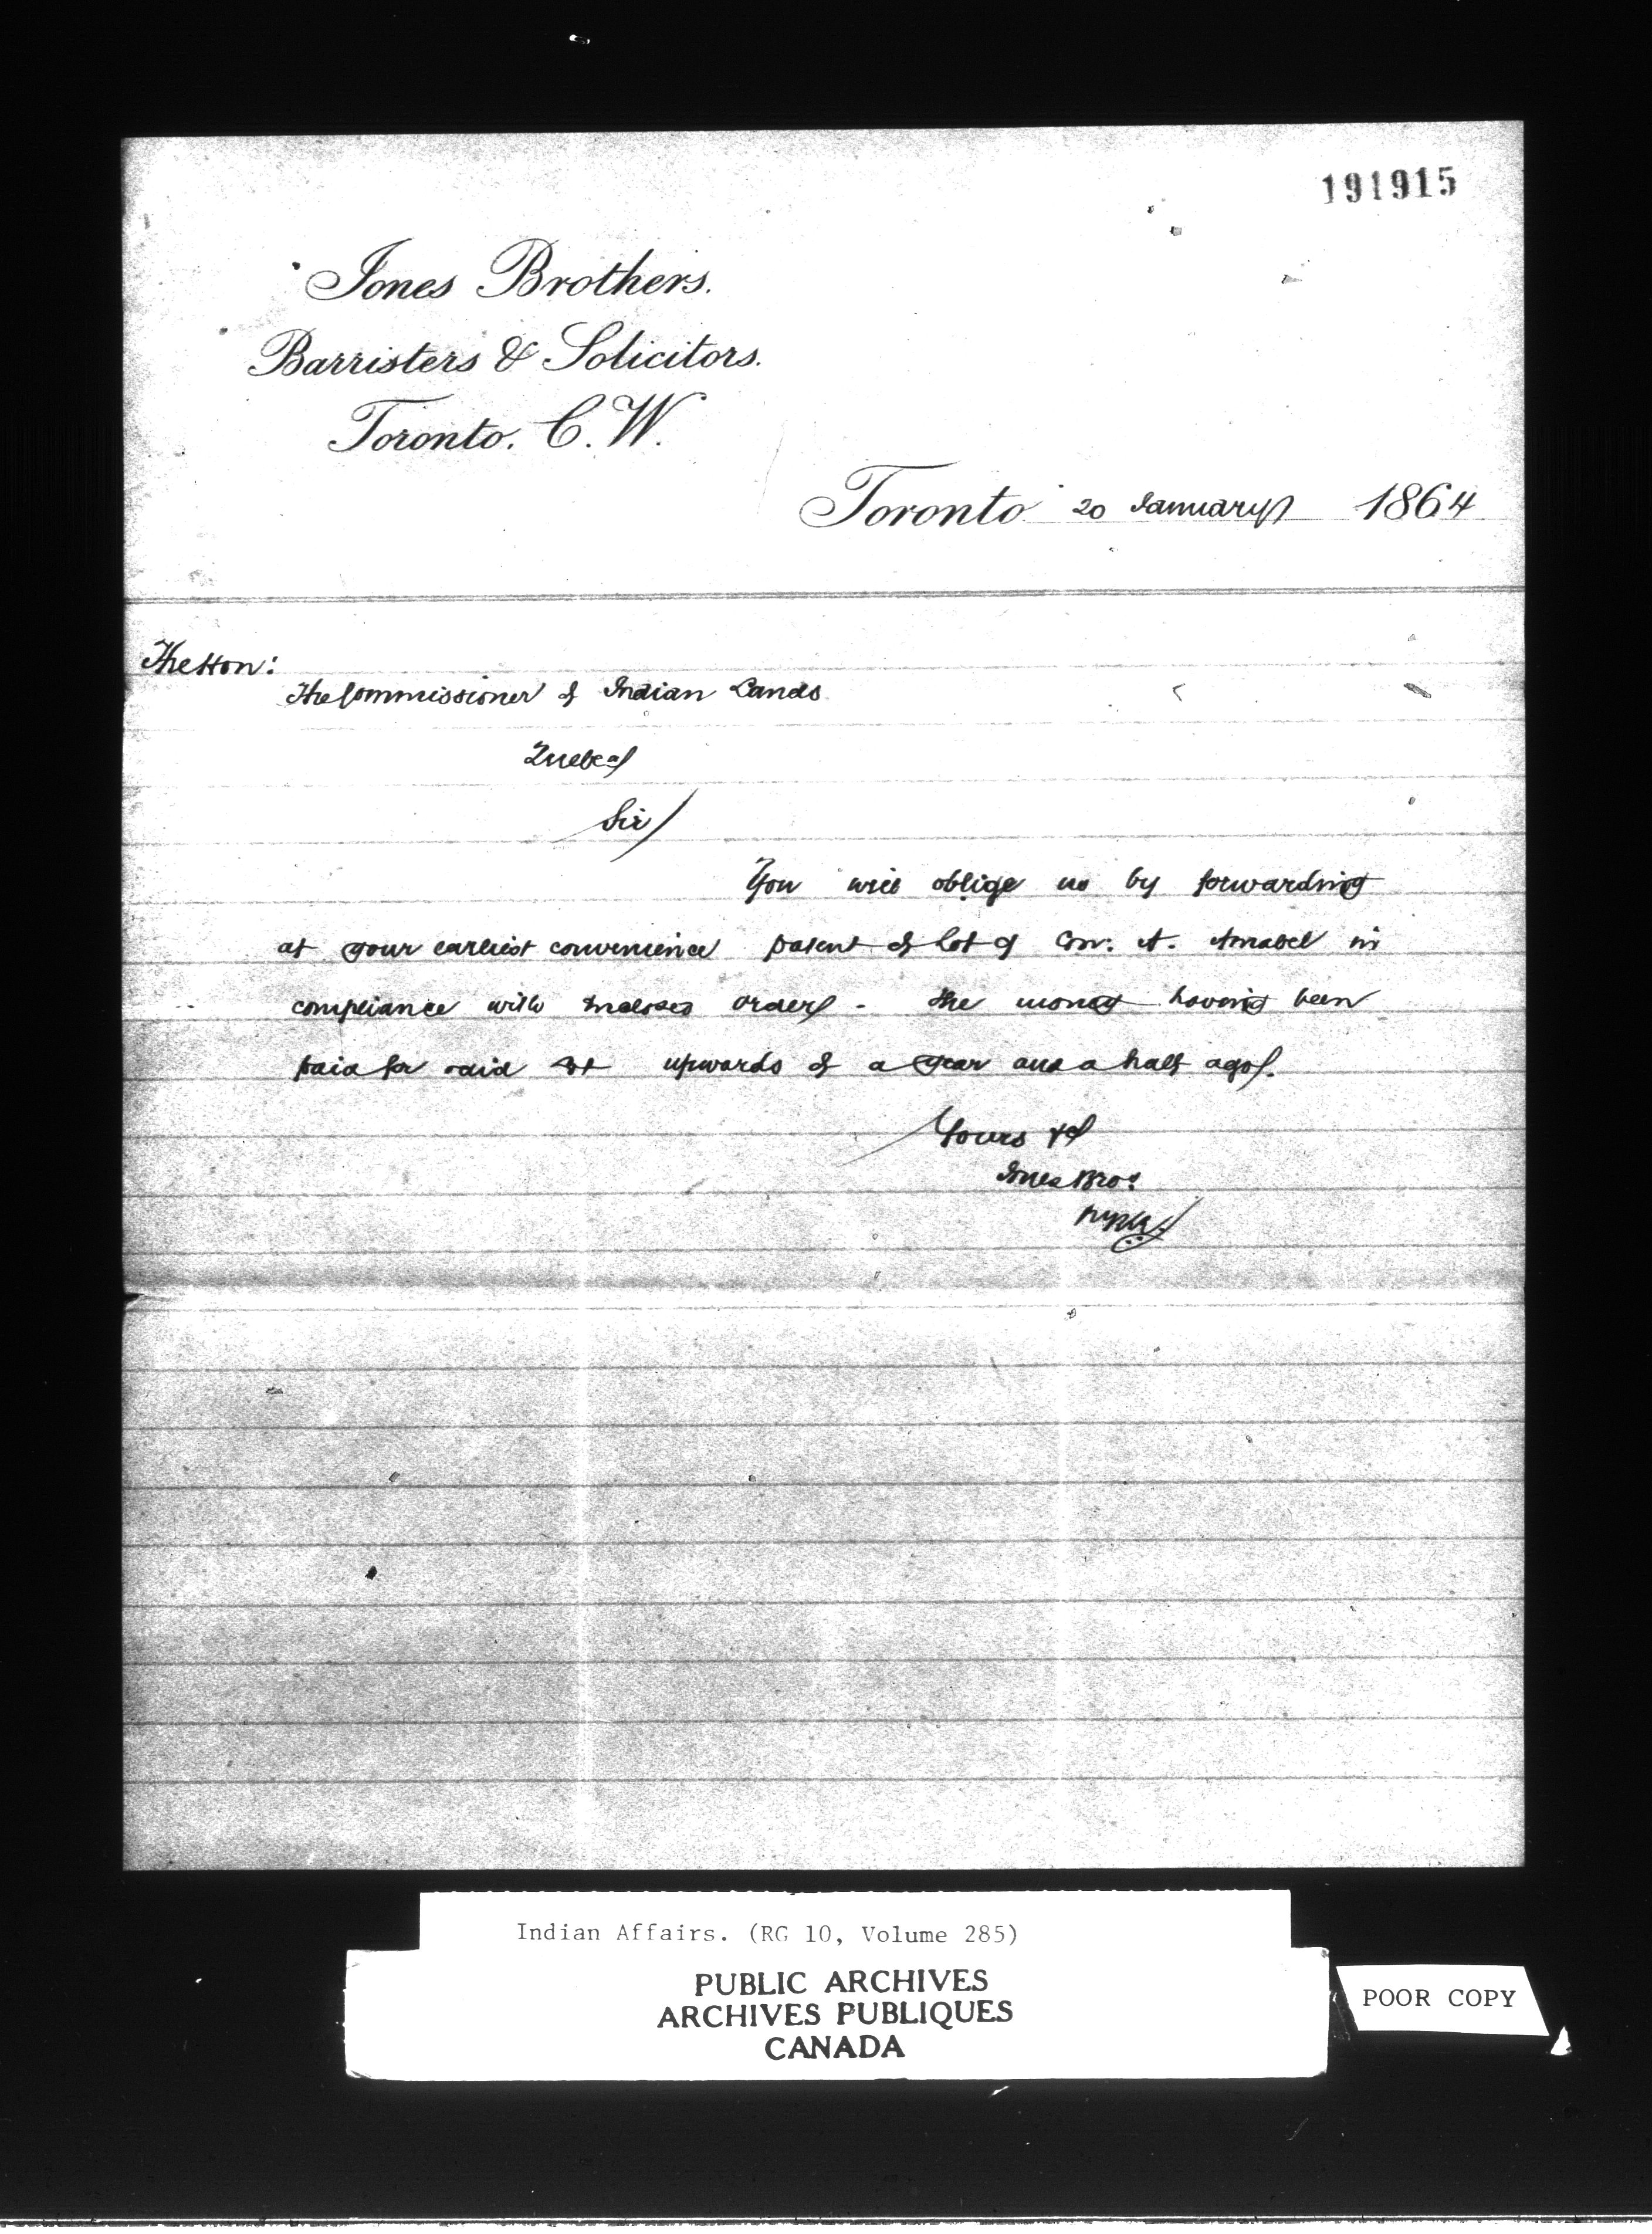 191915
Jones Brothers.
Barristers & Solicitors.
Toronto. C.W.
Toronto 20 January 1864
The Hon:
The Commissioner of Indian Lands
Quebec
Sir/
You will oblige us by forwarding
at your earliest convenience patent of Lot 9 Con: A. Amabel in
compliance with Inclosed order - The money having been
paid for said lot upwards of a year and a half ago.
Yours &c
Jones Bros
Indian Affairs. (RG 10, Volume 285)
PUBLIC ARCHIVES
ARCHIVES PUBLIQUES
CANADA
POOR COPY